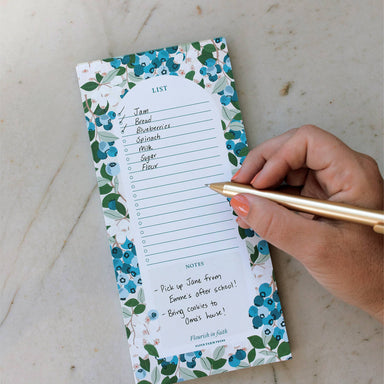 LIST
Jam
Bread
Blueberries
Spinach
Milk
Sugar
Flour
NOTES
- Pick up Jane from
Emme's after school!
- Bring cookies to
Oma's house!
Flourish in faith